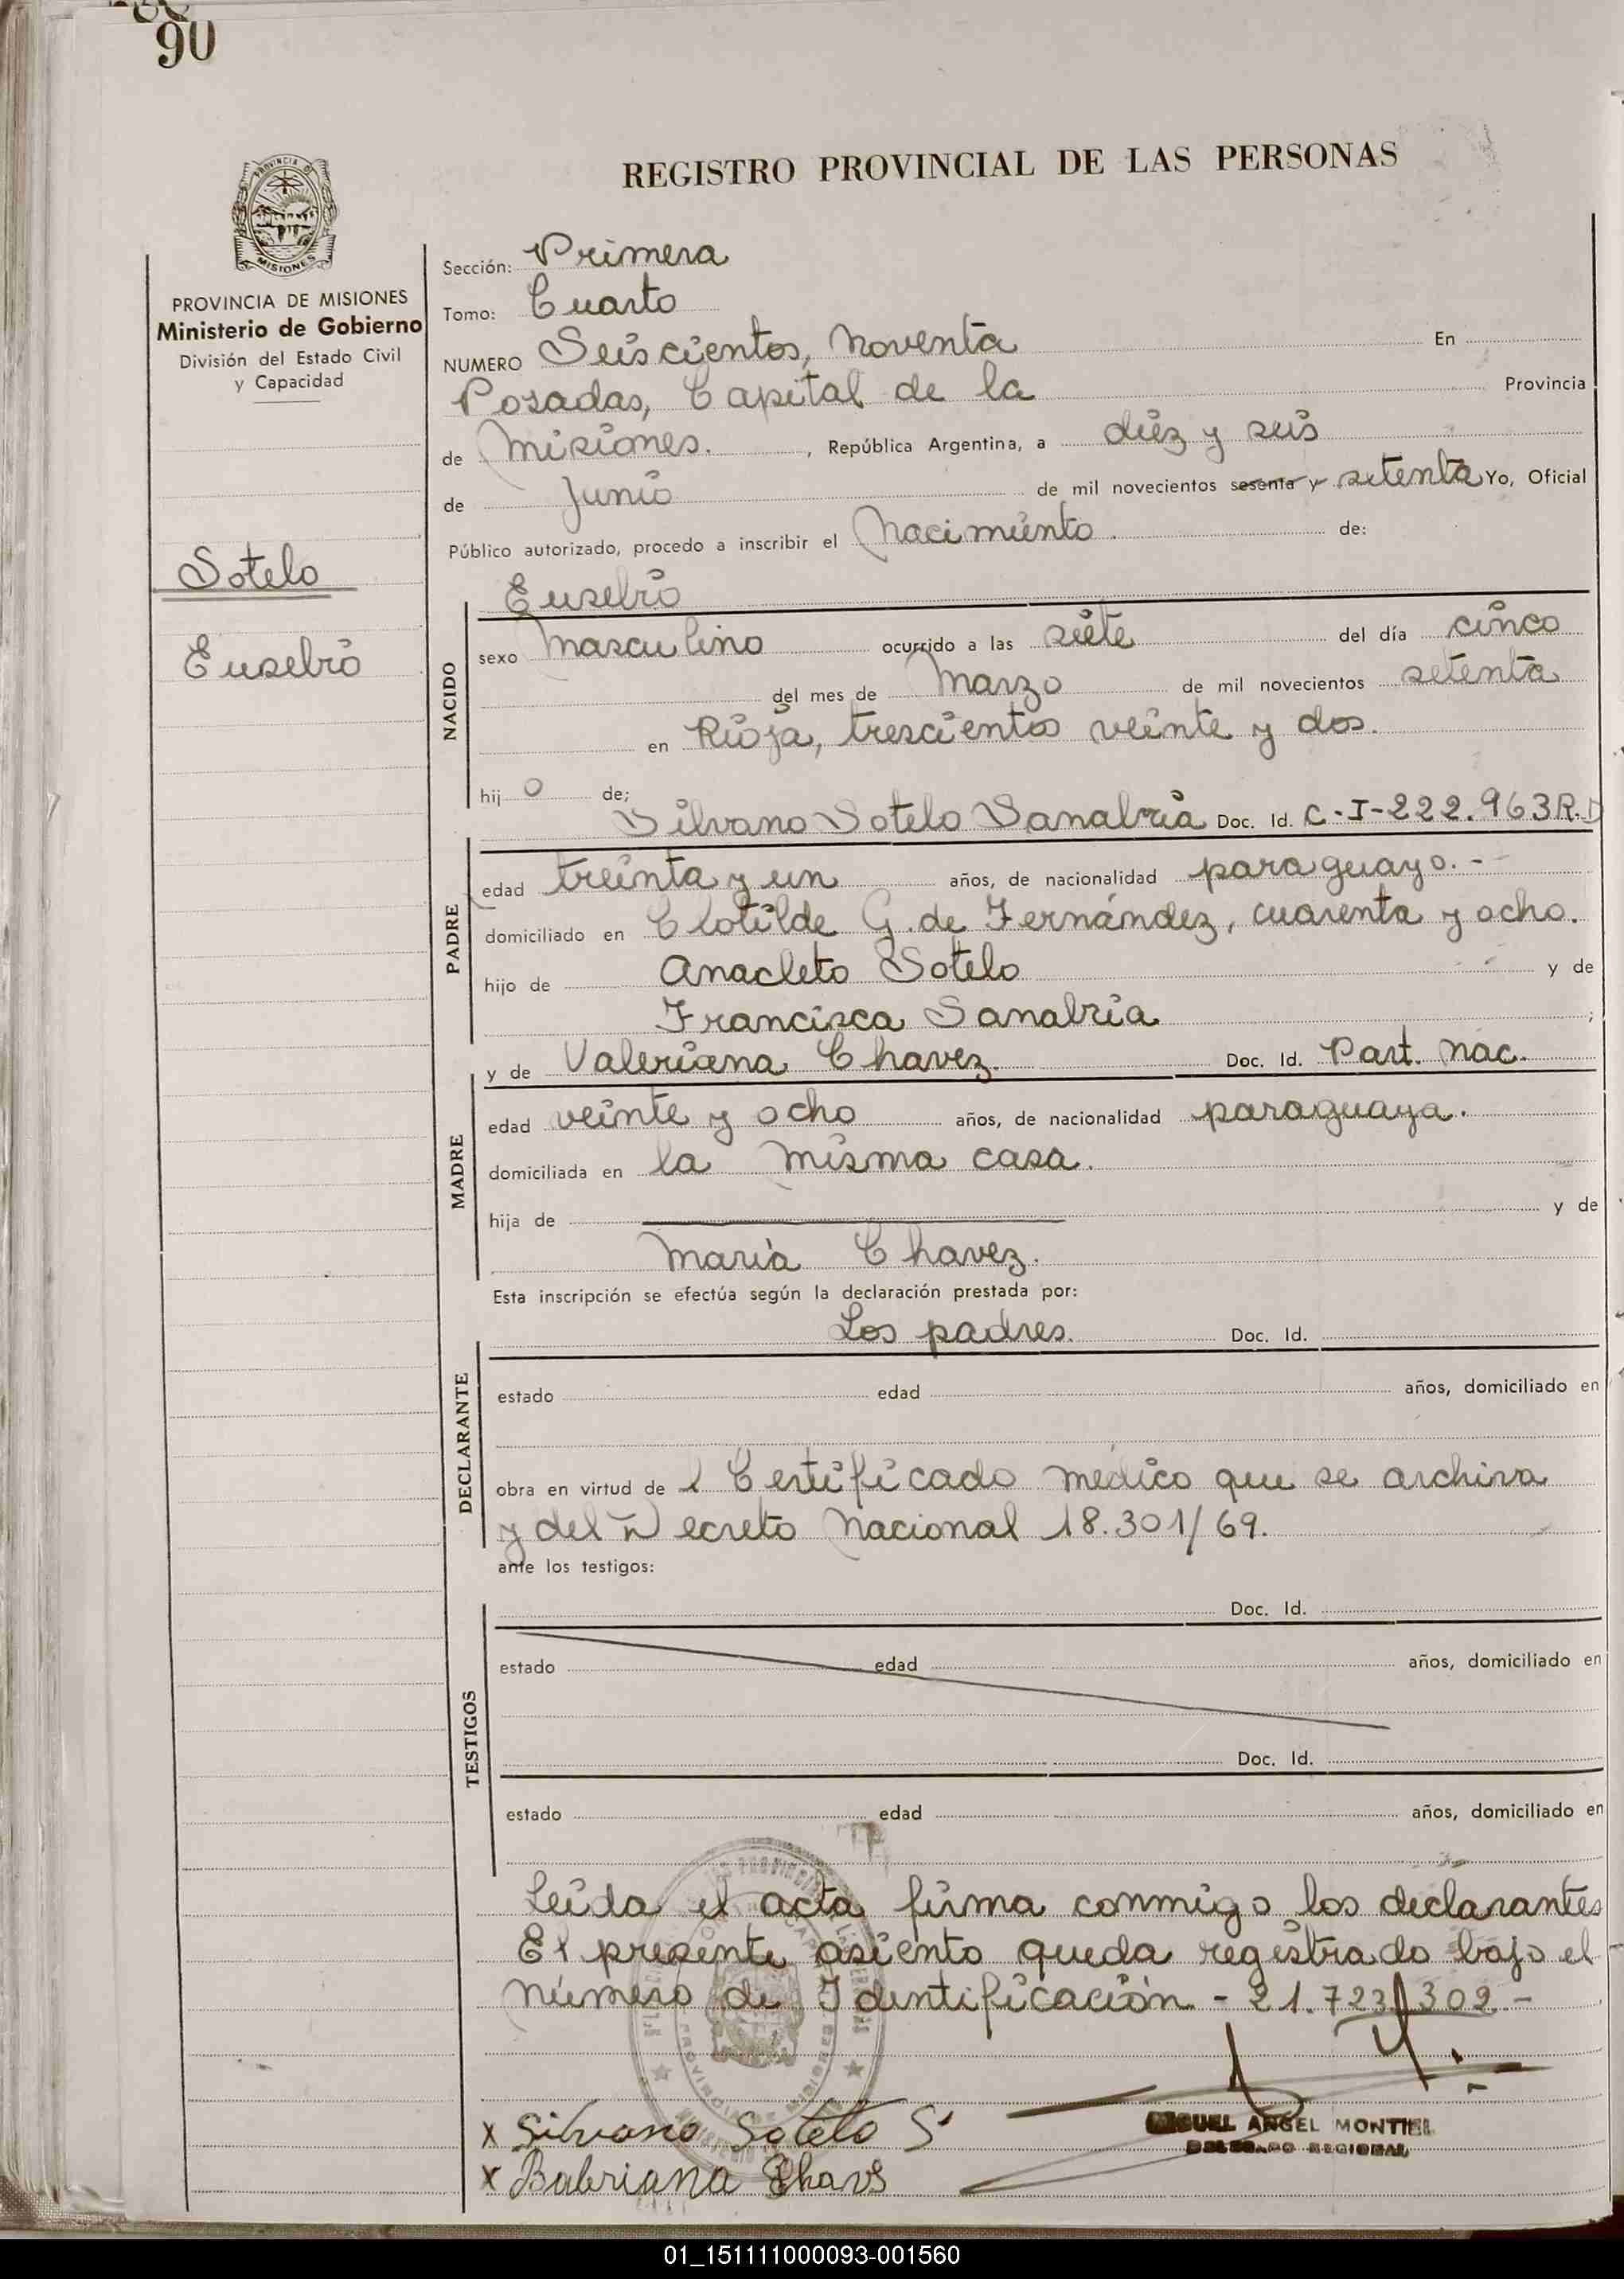 90
REGISTRO PROVINCIAL DE LAS PERSONAS
MISIONES
PROVINCIA DE MISIONES
Ministerio de Gobierno
División del Estado Civil
y Capacidad
Sotelo
Eusebio
Sección: Primera
Tomo: Cuarto
NUMERO Seiscientos, noventa En
Posadas, Capital de la Provincia
de Misiones. , República Argentina, a diez y seis
de Junio de mil novecientos sesenta y setenta Yo, Oficial
Público autorizado, procedo a inscribir el Nacimiento. de:
Eusebio
NACIDO
sexo Masculino ocurrido a las siete del día cinco
del mes de Marzo de mil novecientos setenta
en Rioja, trescientos veinte y dos.
hij o de;
Silvano Sotelo Sanabria Doc. Id. C.I-222.963R.D
PADRE
edad treinta y un años, de nacionalidad paraguayo.-
domiciliado en Clotilde G. de Fernández, cuarenta y ocho.
hijo de Anacleto Sotelo y de
Francisca Sanabria ;
y de Valeriana Chavez. Doc. Id. Part. Nac.
MADRE
edad veinte y ocho años, de nacionalidad paraguaya.
domiciliada en la misma casa.
hija de y de
María Chavez.
Esta inscripción se efectúa según la declaración prestada por:
Los padres. Doc. Id.
DECLARANTE
estado edad años, domiciliado en
obra en virtud de l Certificado médico que se archiva
y del Decreto Nacional 18.301/69.
ante los testigos:
Doc. Id.
TESTIGOS
estado edad años, domiciliado en
Doc. Id.
estado edad años, domiciliado en
Leída el acta firma conmigo los declarantes
El presente asiento queda registrado bajo el
número de Identificación - 21.723.302 -
x Silvano Sotelo S.
MIGUEL ANGEL MONTIEL
DELEGADO REGIONAL
x Balriana Chavs
01_151111000093-001560